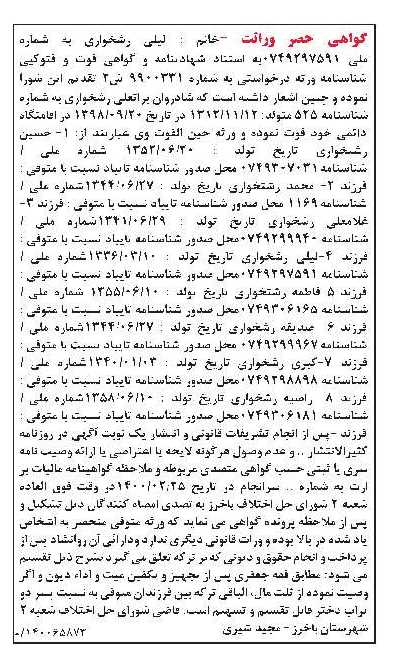 گواهی حصر وراثت -خانم : لیلی رشخواری به شماره
ملی ۰۷۴۹۲۹۷۵۹۱به استناد شهادتنامه و گواهی فوت و فتوکپی
شناسنامه ورثه درخواستی به شماره ۹۹۰۰۳۳۱ ش۲ تقدیم این شورا
نموده و چنین اشعار داشته است که شادروان براتعلی رشخواری به شماره
شناسنامه ۵۲۵ متولد: ۱۳۱۲/۱۱/۱۲ در تاریخ ۱۳۹۸/۰۹/۲۰ در اقامتگاه
دائمی خود فوت نموده و ورثه حین الفوت وی عبارتند از: ۱- حسین
رشخواری تاریخ تولد : ۱۳۵۲/۰۶/۲۰ شماره ملی /
شناسنامه۰۷۴۹۳۰۷۰۳۱ محل صدور شناسنامه تایباد نسبت با متوفی :
فرزند ۲- محمد رشتخواری تاریخ تولد : ۱۳۴۴/۰۶/۲۷شماره ملی /
شناسنامه ۱۱۶۹ محل صدور شناسنامه تایباد نسبت با متوفی : فرزند ۳-
غلامعلی رشخواری تاریخ تولد : ۱۳۴۱/۰۶/۲۹شماره ملی /
شناسنامه ۰۷۴۹۲۹۹۹۴۰محل صدور شناسنامه تایباد نسبت با متوفی:
فرزند ۴-لیلی رشخواری تاریخ تولد : ۱۳۳۶/۰۳/۱۰شماره ملی /
شناسنامه ۰۷۴۹۲۹۷۵۹۱محل صدور شناسنامه تایباد نسبت با متوفی :
فرزند ۵ فاطمه رشتخواری تاریخ تولد : ۱۳۵۵/۰۶/۱۰ شماره ملی /
شناسنامه ۰۷۴۹۳۰۶۱۶۵محل صدور شناسنامه تایباد نسبت با متوفی :
فرزند ۶ صدیقه رشخواری تاریخ تولد : ۱۳۴۴/۰۶/۲۷شماره ملی /
شناسنامه ۰۷۴۹۲۹۹۹۶۷محل صدور شناسنامه تایباد نسبت با متوفی :
فرزند ۷-کبری رشخواری تاریخ تولد : ۱۳۴۰/۰۱/۰۳شماره ملی /
شناسنامه ۰۷۴۹۲۹۸۸۹۸محل صدور شناسنامه تایباد نسبت با متوفی :
فرزند ۸ راضیه رشخواری تاریخ تولد : ۱۳۵۸/۰۶/۱۰شماره ملی /
شناسنامه ۰۷۴۹۳۰۶۱۸۱محل صدور شناسنامه تایباد نسبت با متوفی :
فرزند -پس از انجام تشریفات قانونی و انتشار یک نوبت آگهی در روزنامه
کثیرالانتشار .. و عدم وصول هرگونه لایحه یا اعتراضی یا ارائه وصیت نامه
سری یا ثبتی حسب گواهی متصدی مربوطه و ملاحظه گواهینامه مالیات بر
ارث به شماره .. سرانجام در تاریخ ۱۴۰۰/۰۲/۲۵در وقت فوق العاده
شعبه ۲ شورای حل اختلاف باخرز به تصدی امضاء کنندگان ذیل تشکیل و
پس از ملاحظه پرونده گواهی می نماید که ورثه متوفی منحصر به اشخاص
یاد شده در بالا بوده و وراث قانونی دیگری ندارد ودارائی آن روانشاد پس از
پرداخت و انجام حقوق و دیونی که بر ترکه تعلق می گیرد بشرح ذیل تقسیم
می شود: مطابق فقه جعفری پس از تجهیز و تکفین میت و اداء دیون و اگر
وصیت نموده از ثلث مال، الباقی ترکه بین فرزندان متوفی به نسبت پسر دو
برابر دختر قابل تقسیم و تسهیم است. قاضی شورای حل اختلاف شعبه ۲
شهرستان باخرز - مجید شیری
/۱۴۰۰۶۵۸۷۲م